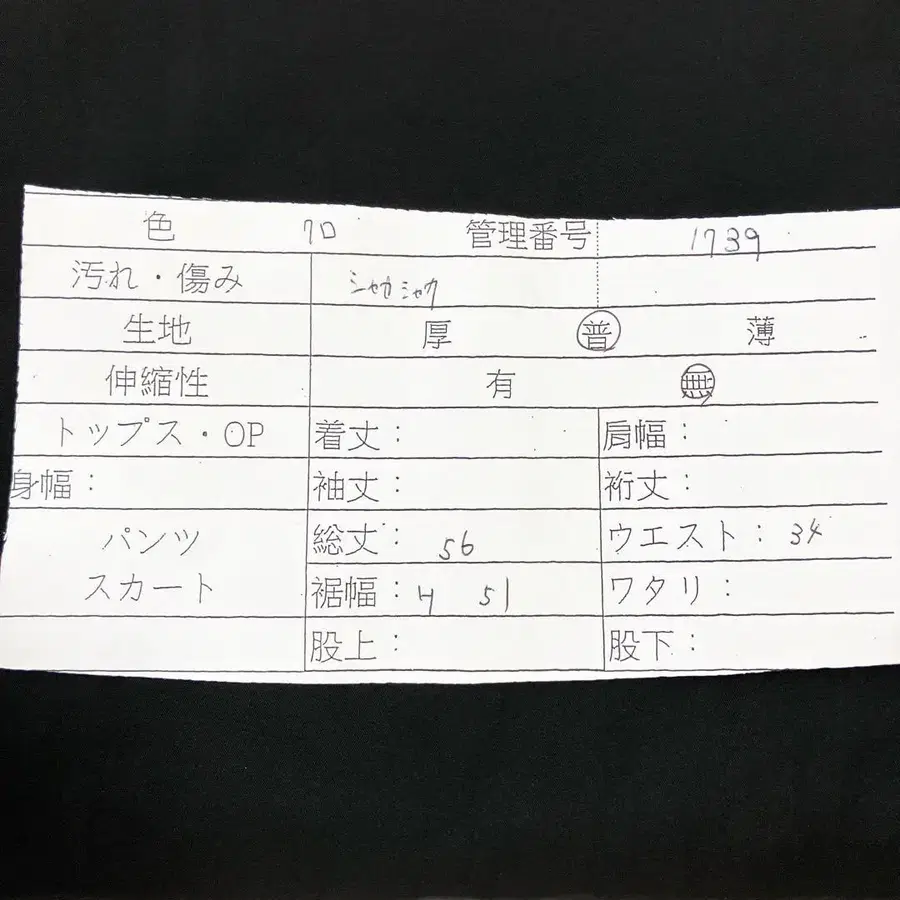 色 クロ 管理番号 1739
汚れ・傷み シャカシャカ
生地 厚 普 薄
伸縮性 有 無
トップス・OP 着丈： 肩幅：
身幅： 袖丈： 裄丈：
パンツ 総丈： 56 ウエスト： 34
スカート 裾幅： H 51 ワタリ：
股上： 股下：